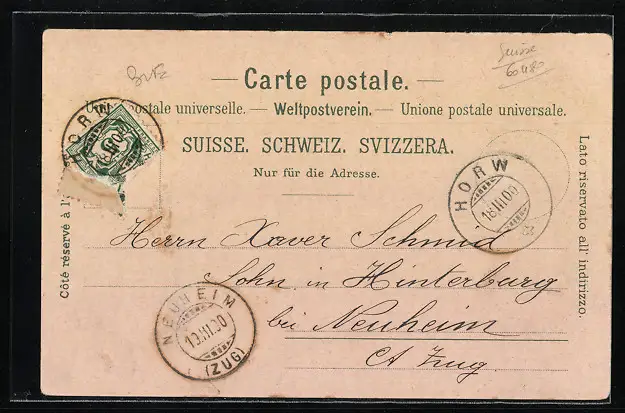 Suisse
— Carte postale. —
Union postale universelle. — Weltpostverein. — Unione postale universale.
SUISSE. SCHWEIZ. SVIZZERA.
Nur für die Adresse.
Côté réservé à l'
Lato riservato all' indirizzo.
HORW
HORW
18.III.00
Herrn Xaver Schmid
Sohn in Hinterburg
bei Neuheim
Ct Zug.
NEUHEIM
19.III.00
(ZUG)